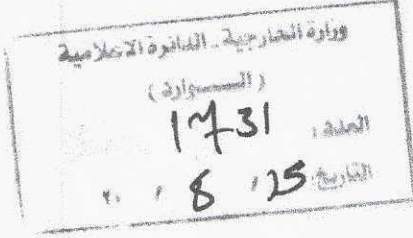 وزارة الخارجية - الدائرة الاعلامية
( الــواردة )
العدد : 1731
التاريخ 25 / 8 / ٢٠